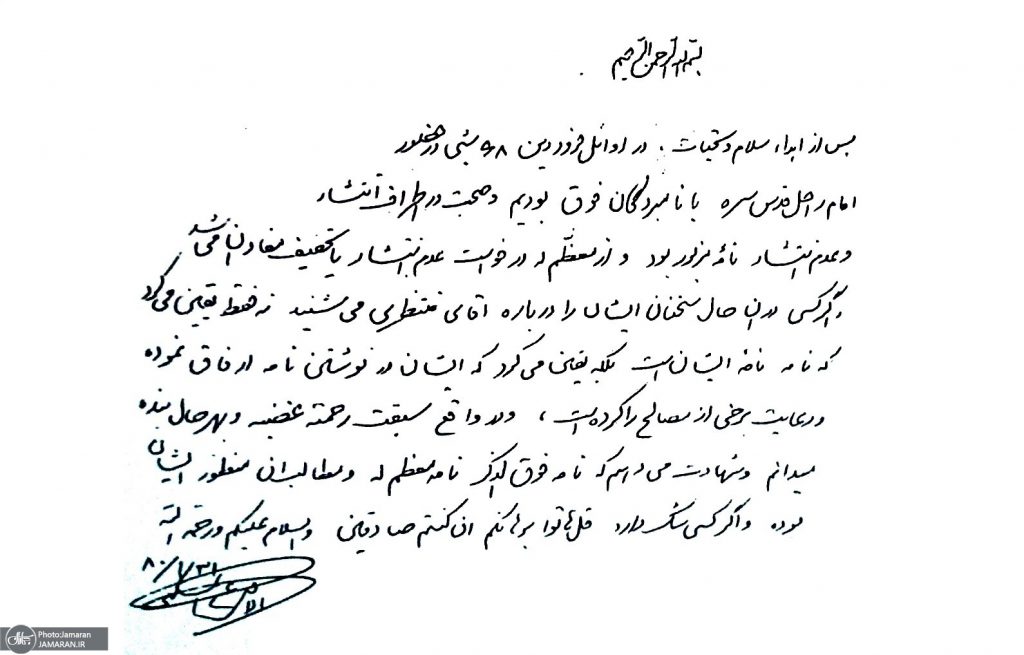 بسم الله الرحمن الرحیم
پس از اهداء سلام و تحیات. در اوائل فروردین ۶۸ شبی در حضور
امام راحل قدس سره با نامبردگان فوق بودیم و صحبت در اطراف انتشار
و عدم انتشار نامه مزبور بود و از معظم له درخواست عدم انتشار یا تخفیف مفاد آن می شد
اگر کسی در آن حال سخنان ایشان را درباره آقای منتظری می شنید نه فقط یقین می کرد
که نامه نامه ایشان است بلکه یقین می کرد که ایشان در نوشتن نامه ارفاق نموده
و رعایت برخی از مصالح را کرده است، و در واقع سبقت رحمته غضبه و بهر حال بنده
میدانم و شهادت می دهم که نامه فوق الذکر نامه معظم له و مطالب آن منظور ایشان
بوده و اگر کسی شک دارد قل هاتوا برهانکم ان کنتم صادقین والسلام علیکم و رحمة الله
۸۰/۱/۳۱
Photo:Jamaran
JAMARAN.IR